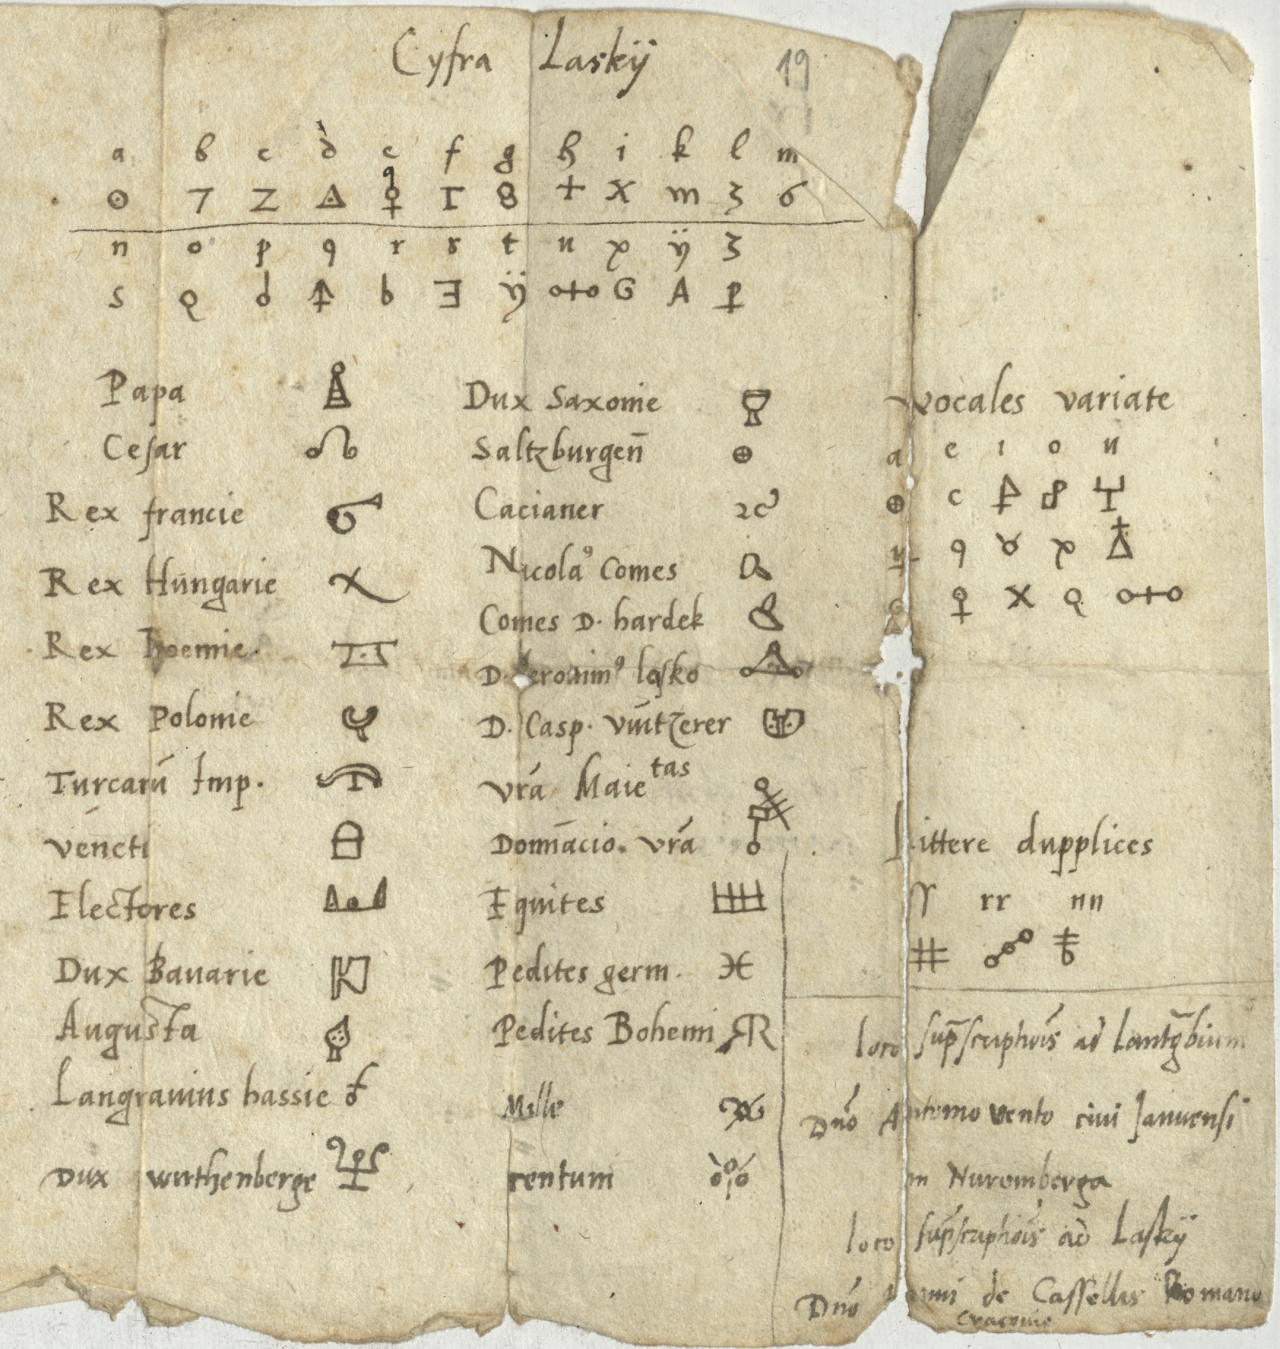 Cyfra Laskÿ 19
a b c d e f g h i k l m
n o p q r s t u x ÿ z
Papa
Cesar
Rex francie
Rex Hungarie
Rex Boemie
Rex Polonie
Turcarū Imp.
veneti
Electores
Dux Bauarie
Augusta
Langrauius hassie
Dux wirthenberge
Dux Saxonie
Saltzburgen̄
Cacianer
Nicola⁹ Comes
Comes D. hardek
D. Jeronim⁹ lasko
D. Casp.
vrā Maietas
Domīacio. vrā
Equites
Pedites germ.
Pedites Bohemi
Mille
centum
vocales variate
a e i o u
Littere dupplices
ff rr nn
loco ad
Dno Antonio vento civi Januensi
in Nuromberga
loco ad Laskÿ
Dno de Cassellis Romano
Cracovie